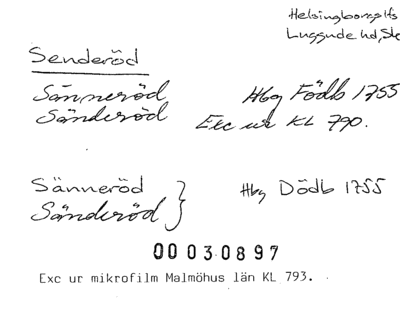 Helsingborgs lfs
Luggude hd, Sk
Senderöd
Sänneröd Hbg Födb 1755
Sänderöd Exc ur KL 790.
Sänneröd Hbg Dödb 1755
Sänderöd
00 030897
Exc ur mikrofilm Malmöhus län KL 793.